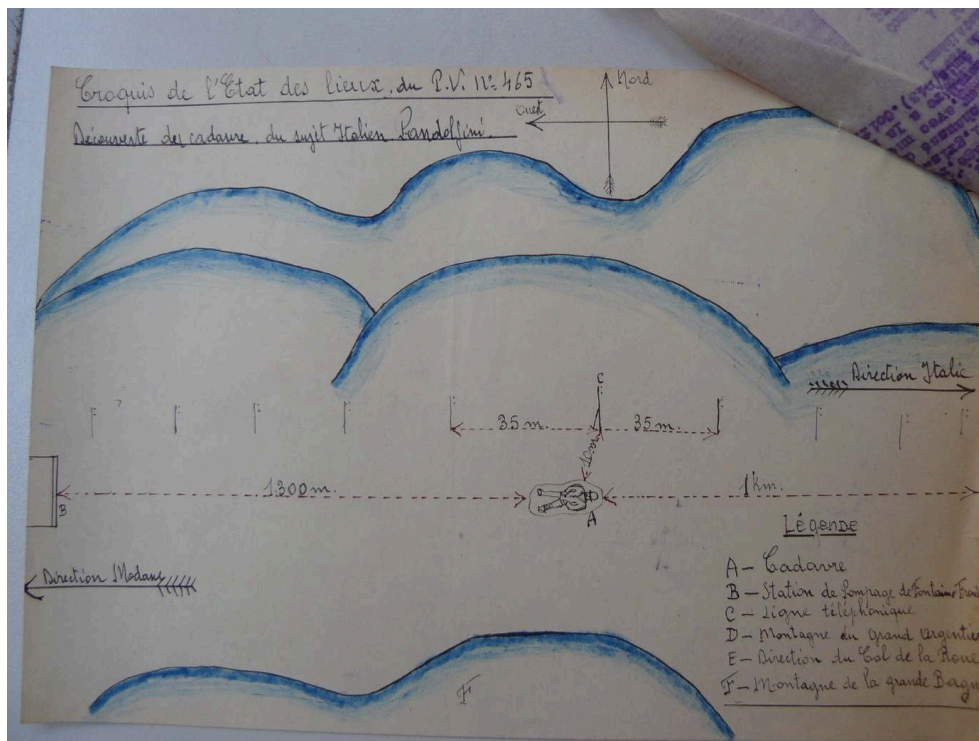 Croquis de l'Etat des lieux du P.V. N° 465
Découverte des cadavre du sujet Italien Pandolfini.
Nord
Ouest
Direction Italie
C
35 m.
35 m.
10m
1300 m.
1 Km.
B
A
Direction Modane
Légende
A – Cadavre
B – Station de Pompage de Fontaine
C – Ligne téléphonique
D – Montagne du Grand Argentie
E – Direction du Col de la Roue
F – Montagne de la grande Bagn
F